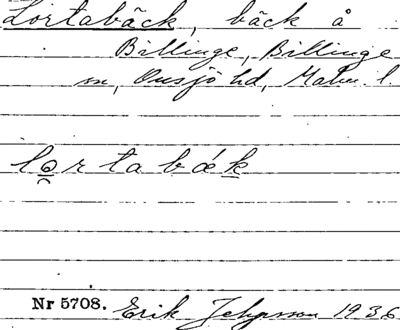 Lortabäck, bäck å
Billinge, Billinge
sn, Onsjö hd, Malm. l.
lortabǽk
Nr 5708. Erik Jeppsson 1936